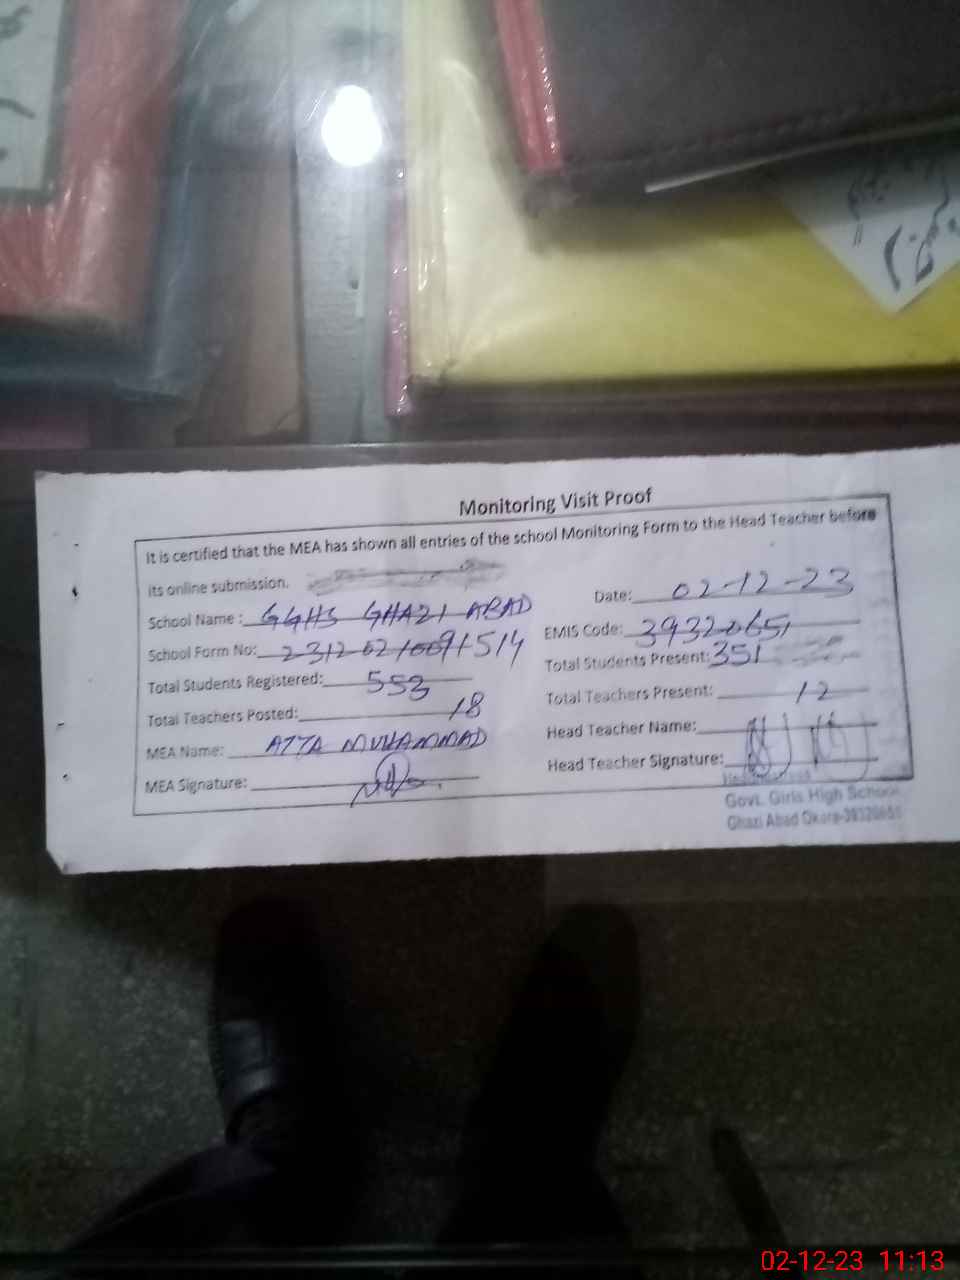 Monitoring Visit Proof
It is certified that the MEA has shown all entries of the school Monitoring Form to the Head Teacher before
its online submission.
Date: 02-12-23
School Name: GGHS GHAZI ABAD
EMIS Code: 39320651
School Form No: 23120210091514
Total Students Present: 351
Total Students Registered: 553
Total Teachers Present: 12
Total Teachers Posted: 18
Head Teacher Name:
MEA Name: ATTA MUHAMMAD
Head Teacher Signature:
MEA Signature:
Govt. Girls High School
Ghazi Abad Okara-39320651
02-12-23 11:13